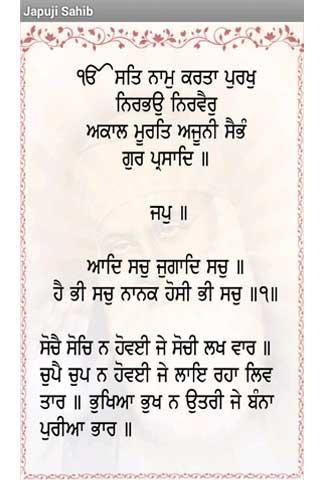 Japuji Sahib
ੴ ਸਤਿ ਨਾਮੁ ਕਰਤਾ ਪੁਰਖੁ
ਨਿਰਭਉ ਨਿਰਵੈਰੁ
ਅਕਾਲ ਮੂਰਤਿ ਅਜੂਨੀ ਸੈਭੰ
ਗੁਰ ਪ੍ਰਸਾਦਿ ॥
ਜਪੁ ॥
ਆਦਿ ਸਚੁ ਜੁਗਾਦਿ ਸਚੁ ॥
ਹੈ ਭੀ ਸਚੁ ਨਾਨਕ ਹੋਸੀ ਭੀ ਸਚੁ ॥੧॥
ਸੋਚੈ ਸੋਚਿ ਨ ਹੋਵਈ ਜੇ ਸੋਚੀ ਲਖ ਵਾਰ ॥
ਚੁਪੈ ਚੁਪ ਨ ਹੋਵਈ ਜੇ ਲਾਇ ਰਹਾ ਲਿਵ
ਤਾਰ ॥ ਭੁਖਿਆ ਭੁਖ ਨ ਉਤਰੀ ਜੇ ਬੰਨਾ
ਪੁਰੀਆ ਭਾਰ ॥